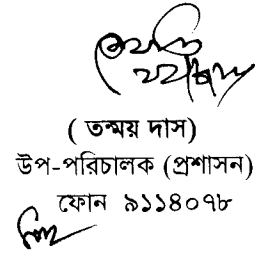 ( তন্ময় দাস)
উপ-পরিচালক (প্রশাসন)
ফোন ৯১১৪০৭৮